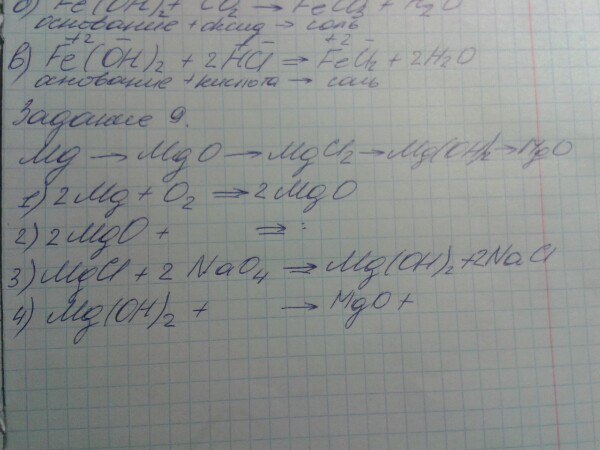 б) Fe(OH)2 + CO2 → FeCO3 + H2O
основание + оксид → соль
+2 - + - +2 -
в) Fe(OH)2 + 2HCl = FeCl2 + 2H2O
основание + кислота → соль
Задание 9.
Mg → MgO → MgCl2 → Mg(OH)2 → MgO
1) 2Mg + O2 ⇒ 2MgO
2) 2MgO + ⇒
3) MgCl + 2 NaO4 ⇒ Mg(OH)2 + 2NaCl
4) Mg(OH)2 + → MgO +